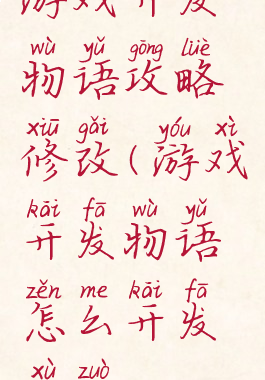 游戏开发
wù yǔ gōng lüè
物语攻略
xiū gǎi yóu xì
修改(游戏
kāi fā wù yǔ
开发物语
zěn me kāi fā
怎么开发
xù zuò